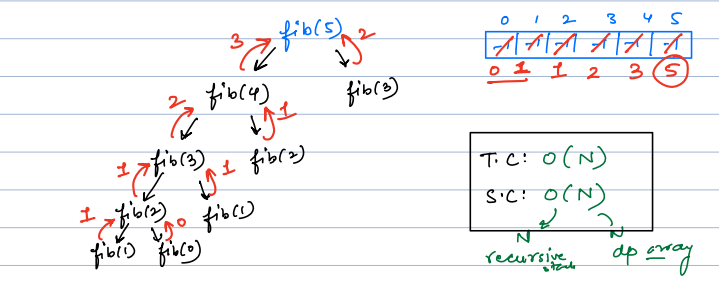 fib(5)
3 2
fib(4) fib(3)
2 1
fib(3) fib(2)
1 1
fib(2) fib(1)
1 0
fib(1) fib(0)
0 1 2 3 4 5
-1 -1 -1 -1 -1 -1
0 1 1 2 3 5
T.C: O(N)
S.C: O(N)
N N
recursive dp array
stack